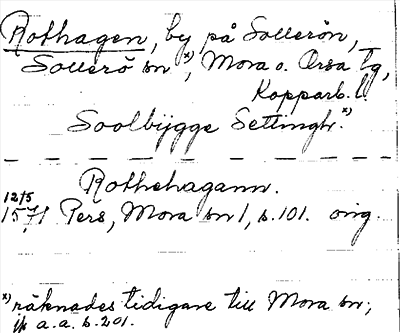 Rothagen, by på Sollerön,
Sollerö sn x), Mora o. Orsa tg,
Kopparb. l.
Soolbygge Settingh. x)
Rothehagann.
12/5
1571 Pers, Mora sn 1, s. 101. orig.
x) räknades tidigare till Mora sn;
jfr a.a. s. 201.